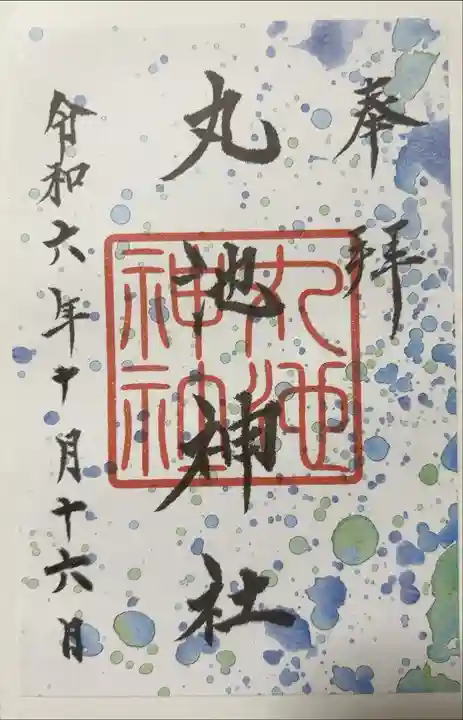 奉拝
丸池神社
丸池
神社
令和六年十月十六日